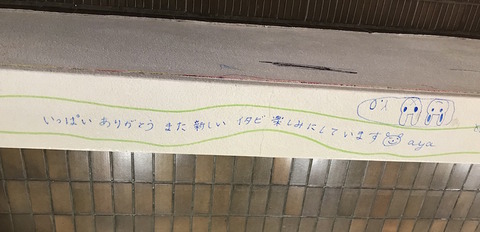 いっぱい ありがとう また 新しい イタビ 楽しみにしています aya